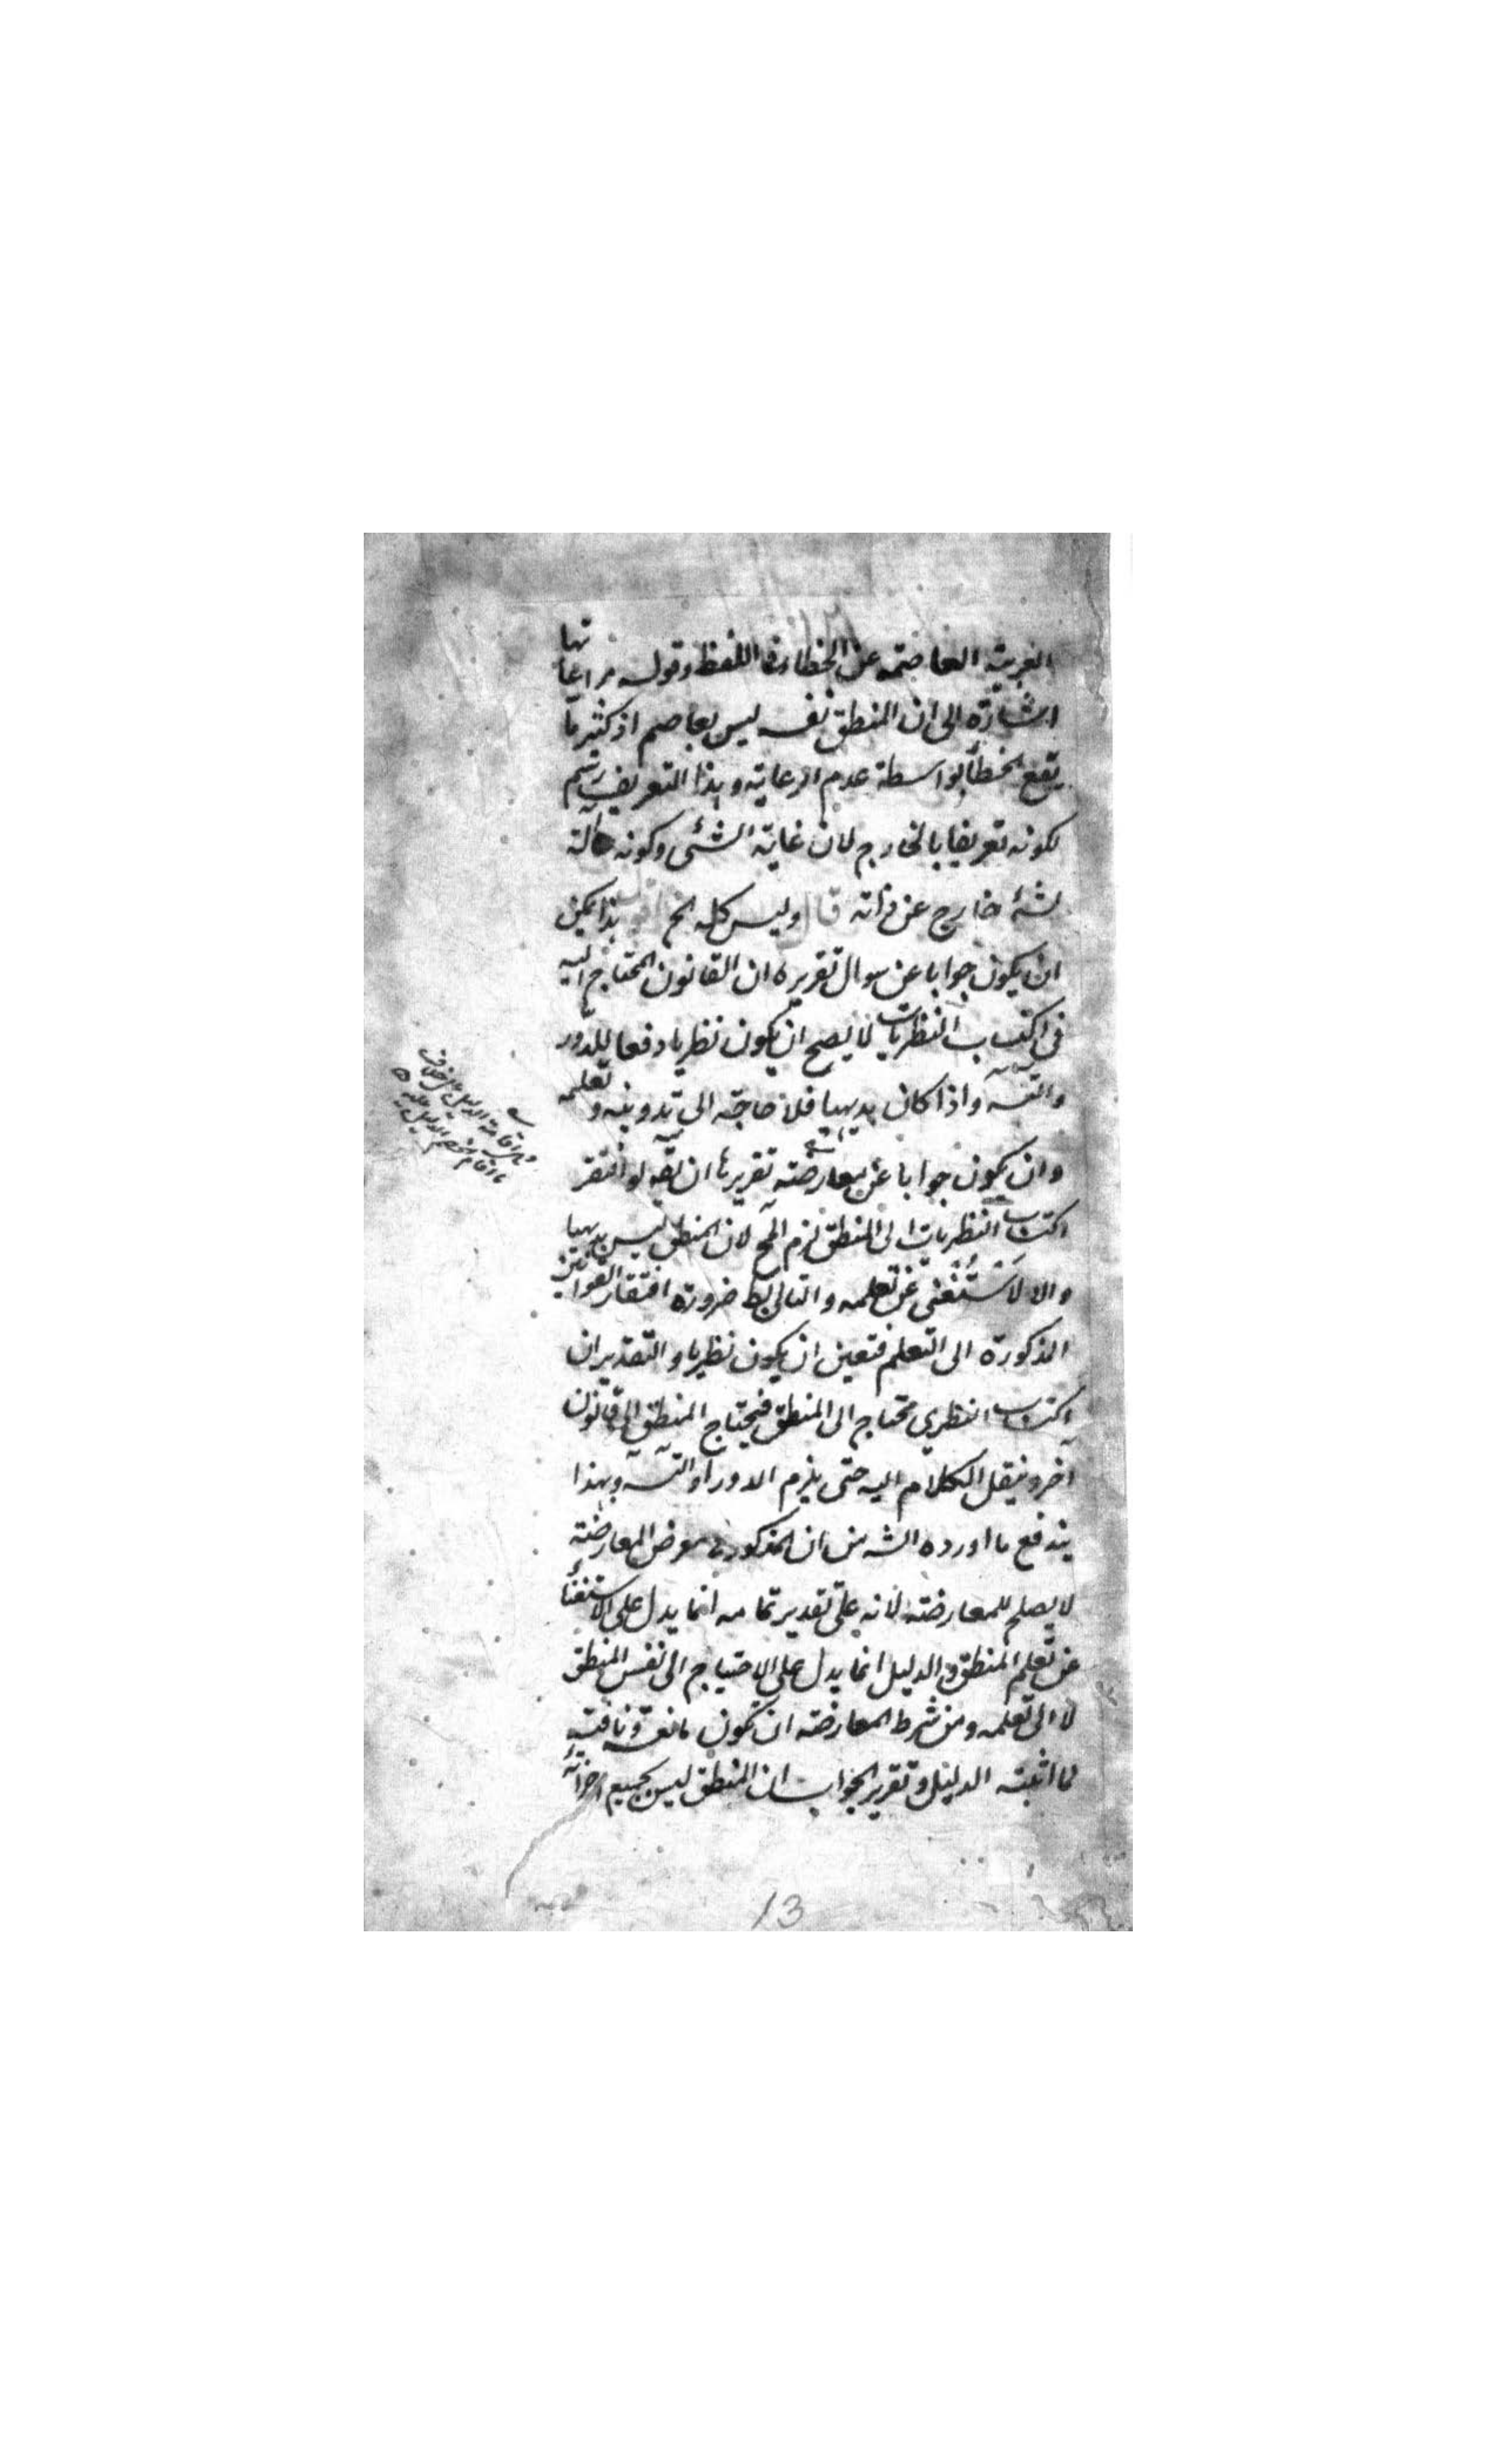 العربية العاصمة عن الخطاء فى اللفظ وقوله مراعاتها
اشارة الى ان المنطق نفسه ليس بعاصم اذ كثيرا ما
يقع الخطأ بواسطة عدم الرعاية وهذا التعريف رسم
لكونه تعريفا بالخارج لان غاية الشئ وكونه آلة
لشئ خارج عن ذاته قال وليس كله الخ اقول هذا يمكن
ان يكون جوابا عن سوال تقريره ان القانون المحتاج اليه
فى اكتساب النظريات لا يصح ان يكون نظريا دفعا للدور
والتسه واذا كان بديهيا فلا حاجة الى تدوينه وتعلمه
وان يكون جوابا عن معارضة تقريرها ان يقه لو افتقر
اكتساب النظريات الى المنطق لزم المح لان المنطق ليس بديهيا
والا لاستغنى عن تعلمه والتالى بط ضرورة افتقار القوانين
المذكورة الى التعلم فتعين ان يكون نظريا والتقدير ان
اكتساب النظري محتاج الى المنطق فيحتاج المنطق الى قانون
آخر وينقل الكلام اليه حتى يلزم الدور او التسه وبهذا
يندفع ما اورده الشه من ان المذكور فى معرض المعارضة
لا يصلح للمعارضة لانه على تقدير تمامه انما يدل على الاستغناء
عن تعلم المنطق والدليل انما يدل على الاحتياج الى نفس المنطق
لا الى تعلمه ومن شرط المعارضة ان تكون مانعة ونافية
لما اثبته الدليل وتقرير الجواب ان المنطق ليس بجميع اجزائه
هى اقامة الدليل على خلاف
ما اقام الخصم الدليل عليه
13